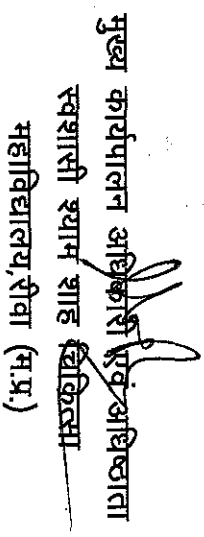 मुख्य कार्यपालन अधिकारी एवं अधिष्ठाता
स्वशासी श्याम शाह चिकित्सा
महाविद्यालय,रीवा (म.प्र.)